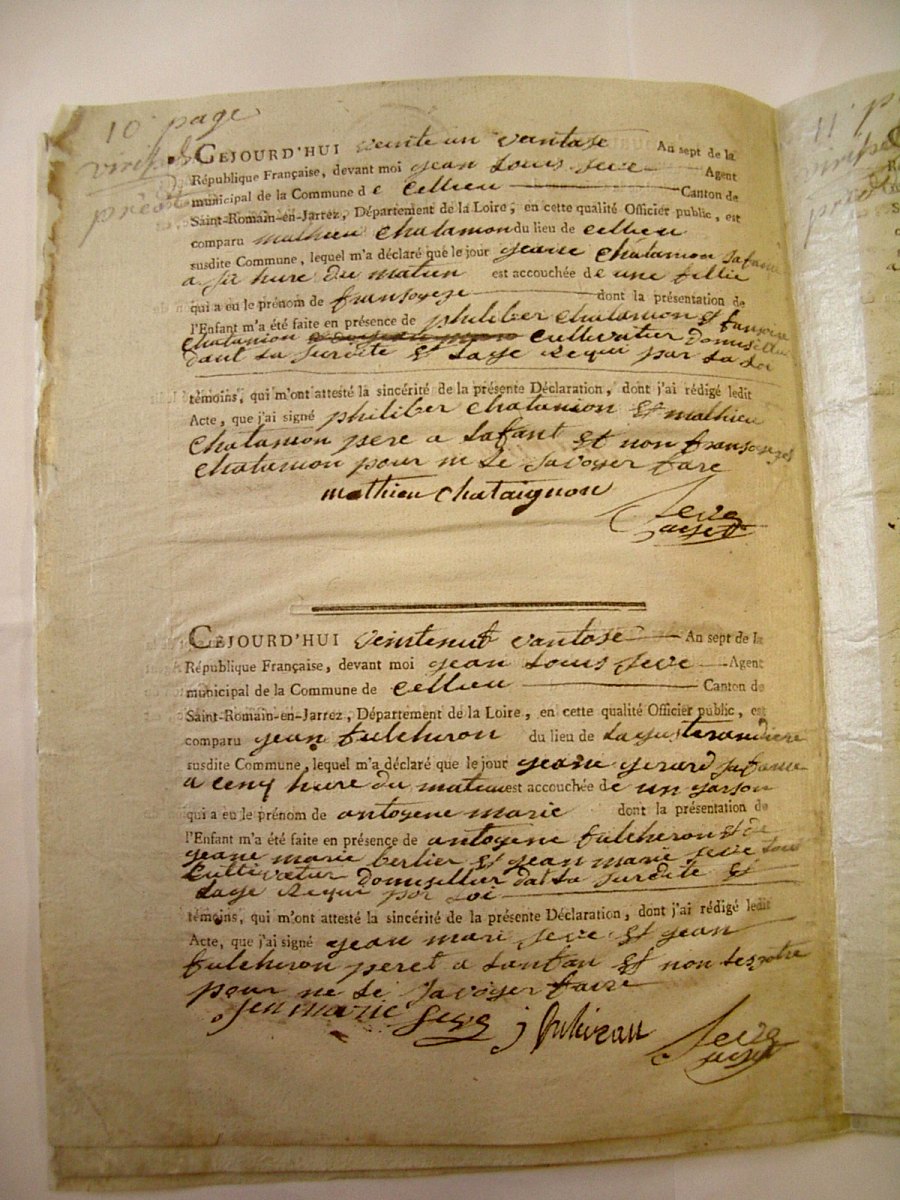 10e page
CEJOURD'HUI veinte un vantose An sept de la
République Française, devant moi jean Louis seve Agent
municipal de la Commune de Cellieu Canton de
Saint-Romain-en-Jarrez, Département de la Loire, en cette qualité Officier public, est
comparu mathieu chatanion du lieu de Cellieu
susdite Commune, lequel m'a déclaré que le jour jeane chatanion safame
a six hure du matien est accouchée de une fillie
qui a eu le prénom de fransoyeze dont la présentation de
l'Enfant m'a été faite en présence de philiber chatanion et
chatanion cultivatier domisillie
dant La surdite et Lage Requi par La Loi
témoins, qui m'ont attesté la sincérité de la présente Déclaration, dont j'ai rédigé ledit
Acte, que j'ai signé philiber chatanion et mathieu
chatanion pere a Lafant et non fransoyeze
chatanion pour ne Le savoyer fare
mathieu chataignon
Seve
agent
CEJOURD'HUI veintenuf vantose An sept de la
République Française, devant moi jean Louis seve Agent
municipal de la Commune de Cellieu Canton de
Saint-Romain-en-Jarrez, Département de la Loire, en cette qualité Officier public, est
comparu jean fulcheron du lieu de
susdite Commune, lequel m'a déclaré que le jour jeane gerard safame
a cenq hure du matien est accouchée de un garson
qui a eu le prénom de antoyene marie dont la présentation de
l'Enfant m'a été faite en présence de antoyene fulcheron et de
jeane marie berlier et jean marie seve tous
cultivateur domisillier dat La surdite et
Lage Requi par Loi
témoins, qui m'ont attesté la sincérité de la présente Déclaration, dont j'ai rédigé ledit
Acte, que j'ai signé jean mari seve et jean
fulcheron peret a Lanfan et non Les otre
pour ne Le savoyer faire
jen marie Seve
Seve
agent